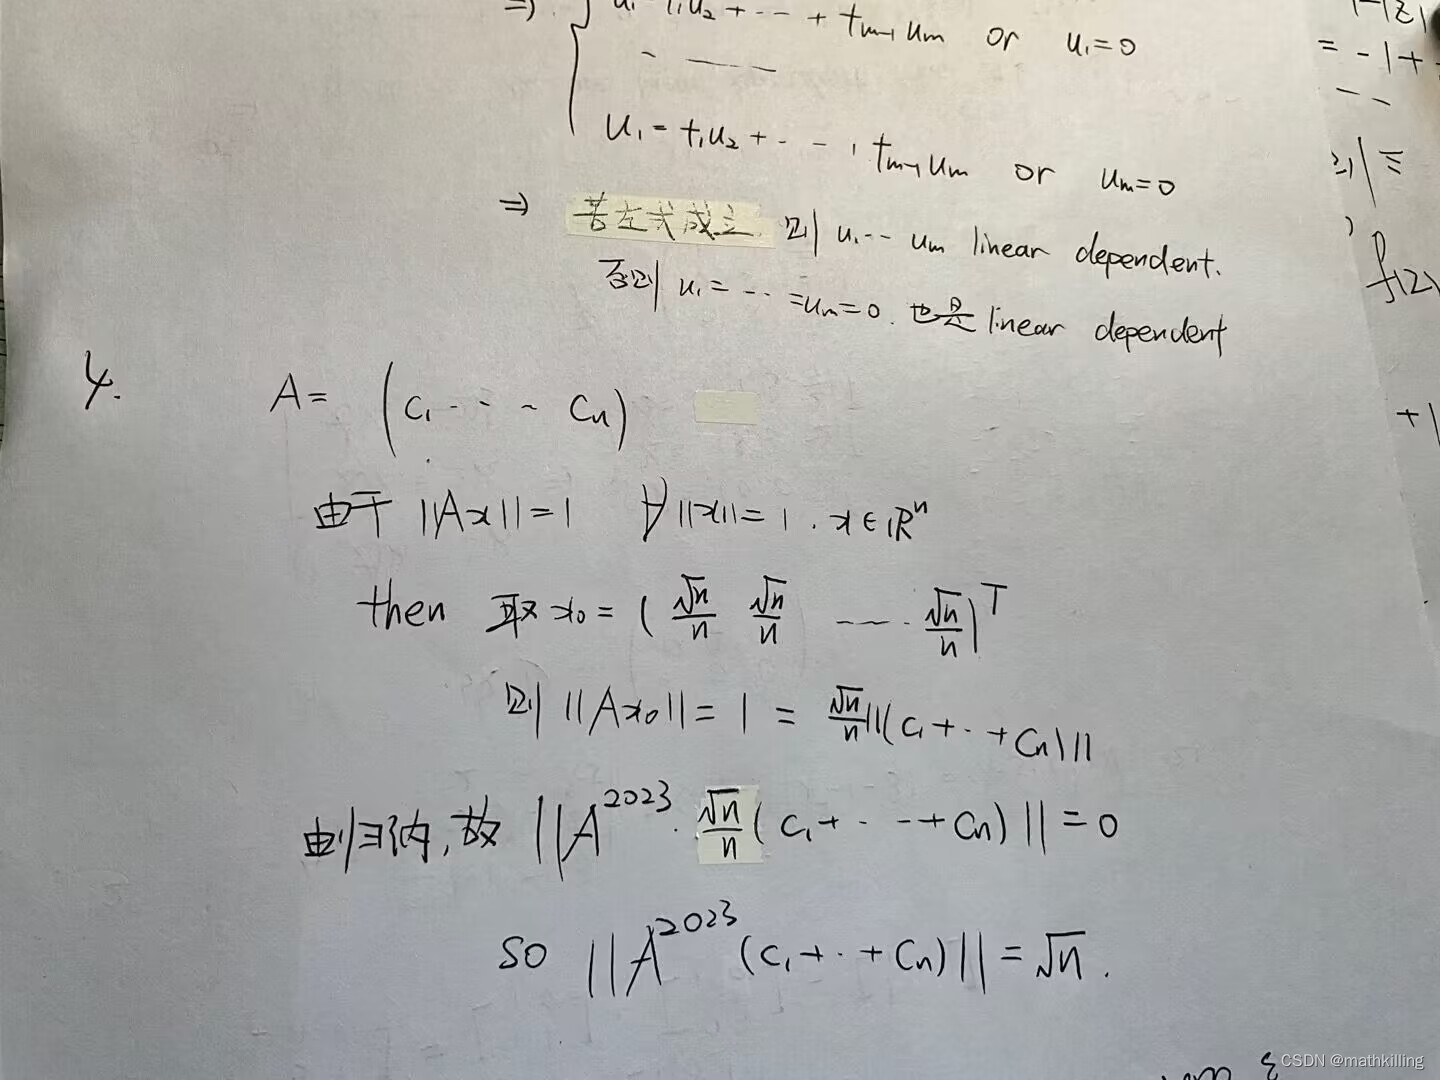 ⇒ { u₁ t₁u₂ + ⋯ + tₘ₋₁uₘ or u₁=0
u₁ = t₁u₂ + ⋯ , tₘ₋₁uₘ or uₘ=0
⇒ 若左式成立 则 u₁⋯uₘ linear dependent.
否则 u₁=⋯=uₘ=0. 也是 linear dependent
4. A= (c₁⋯cₙ)
由于 ||Ax||=1 ∀||x||=1. x∈ℝⁿ
then 取x₀=(√n/n √n/n ⋯ √n/n)ᵀ
则 ||Ax₀||=1=√n/n||(c₁+⋯+cₙ)||
由归纳,故 ||A²⁰²³·√n/n(c₁+⋯+cₙ)||=0
so ||A²⁰²³(c₁+⋯+cₙ)||=√n.
|-|z|
= -1+
则
f(z)
+1
CSDN @mathkilling